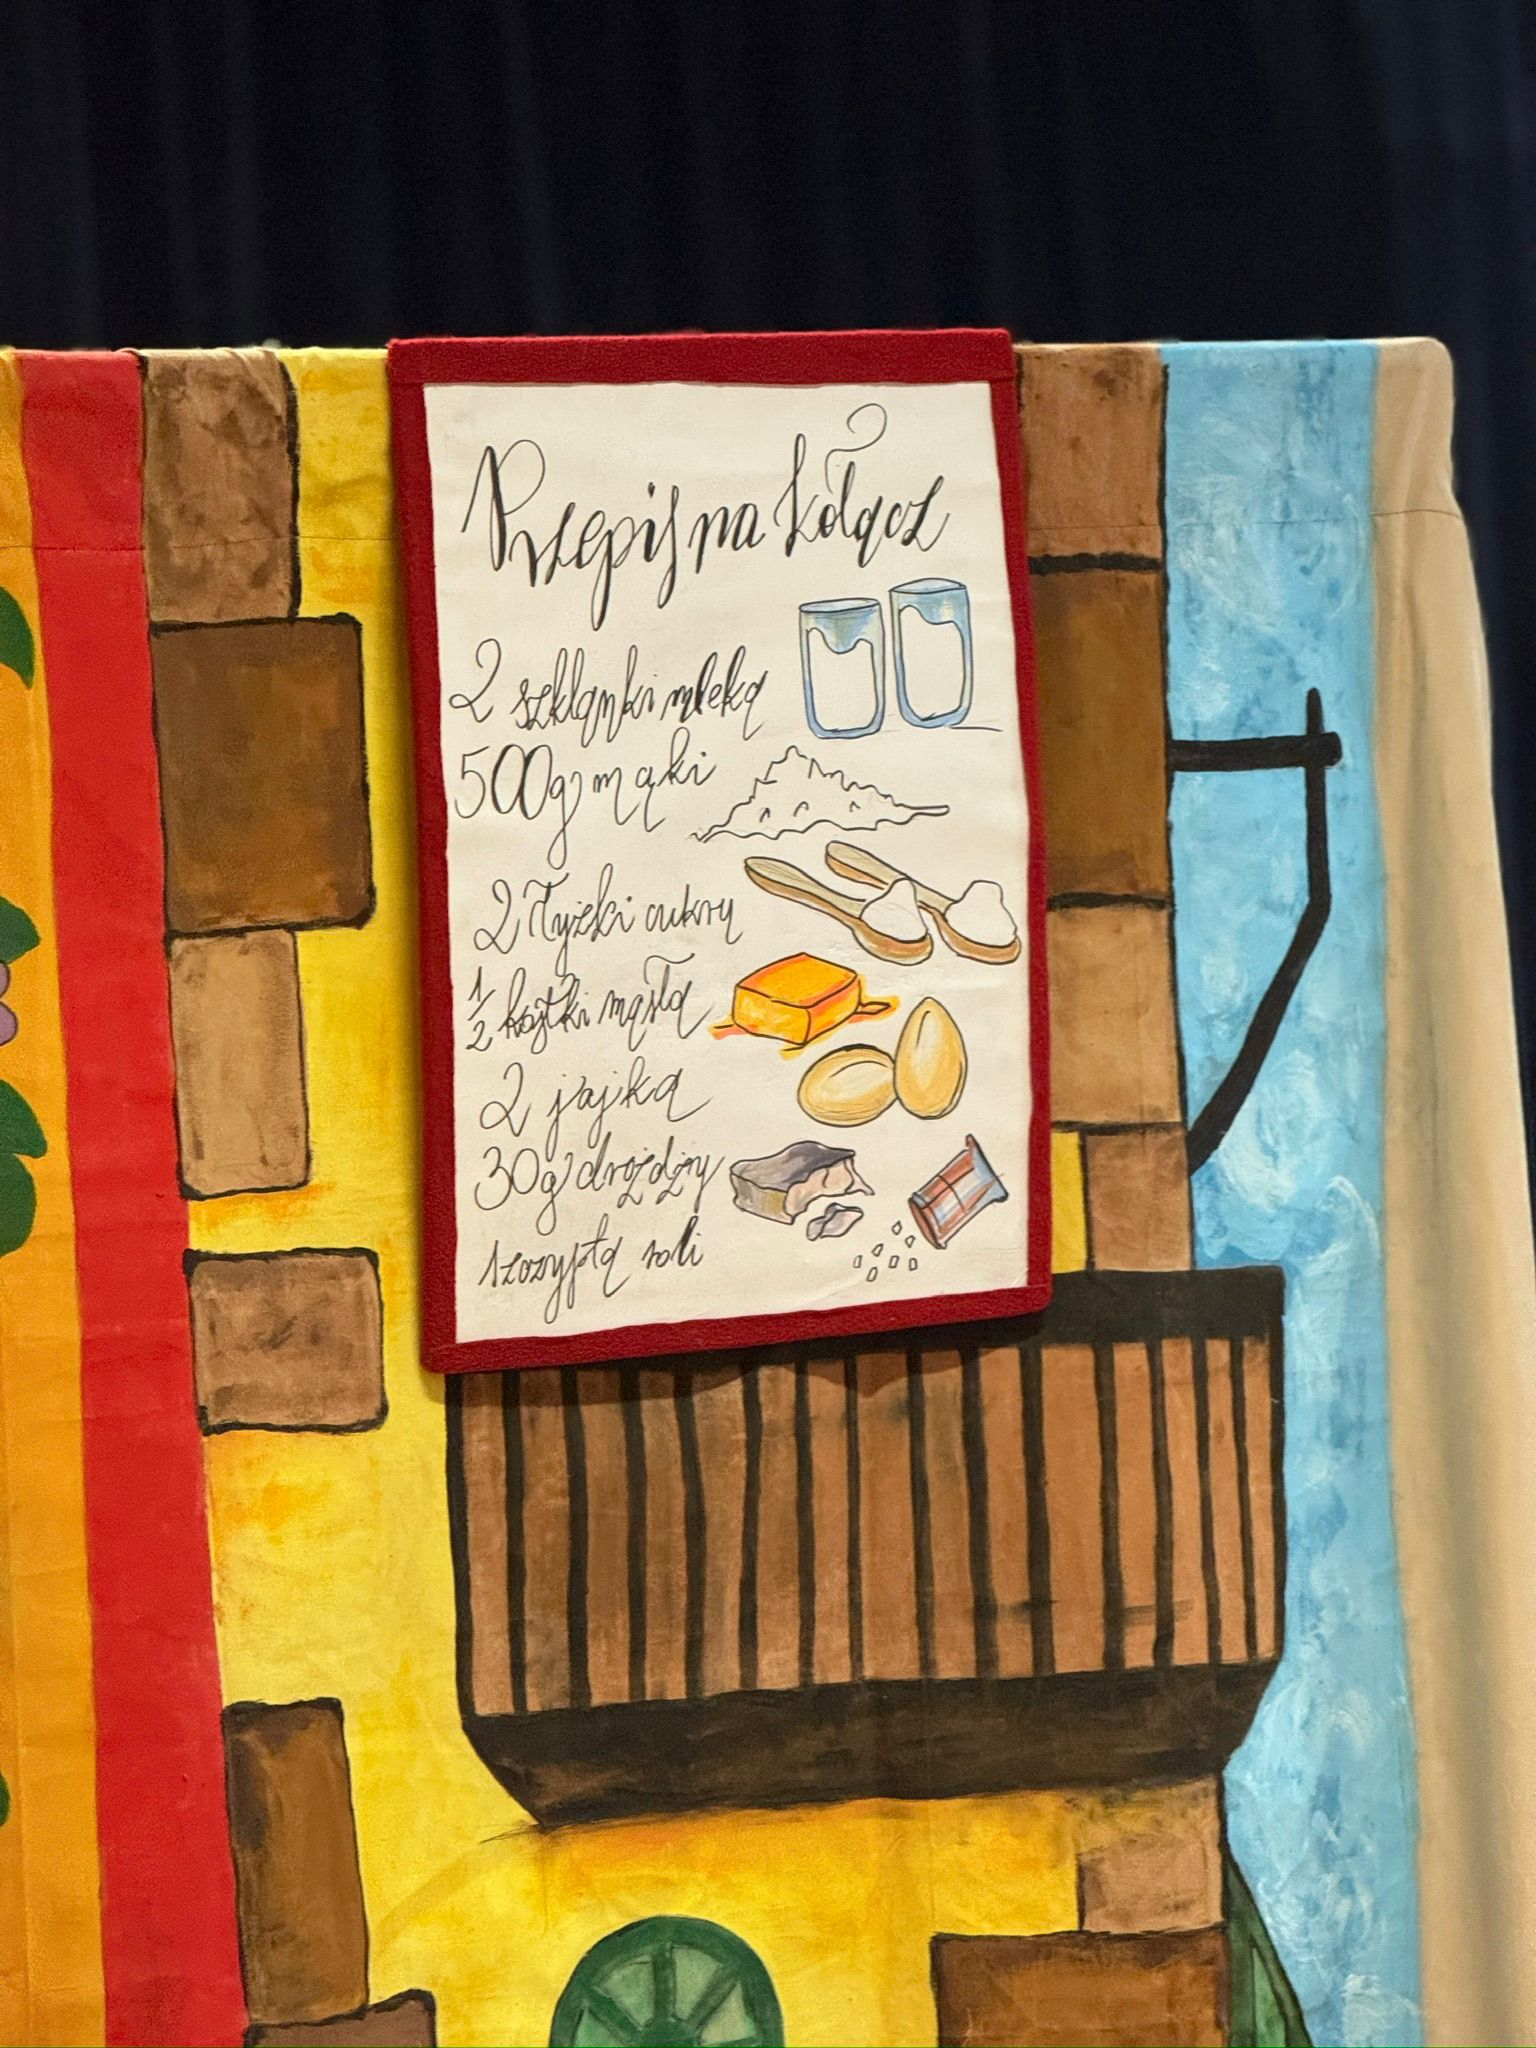 Przepis na kołacz
2 szklanki mleka
500g mąki
2 łyżki cukru
1/2 kostki masła
2 jajka
30g drożdży
szczypta soli